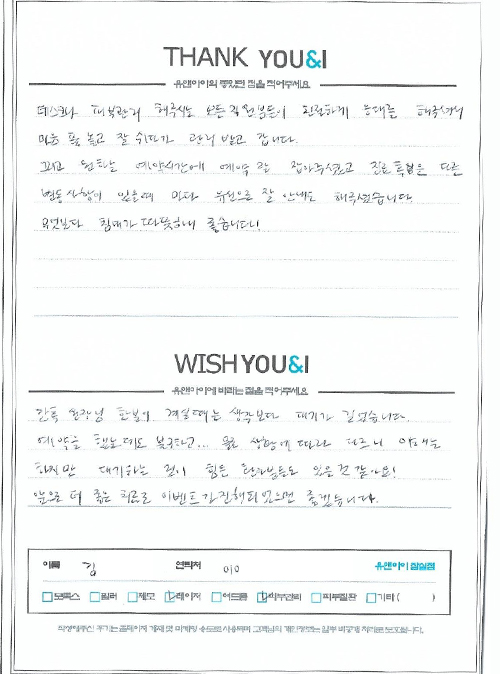 THANK YOU&I
유앤아이의 좋았던 점을 적어주세요
데스크나 피부관리 해주시는 모든 직원분들이 친절하게 응대를 해주셔서
마음 푹 놓고 잘 쉬다가 관리 받고 갑니다.
그리고 원하는 예약시간에 예약 잘 잡아주셨고 진료 특별은 다른
변동사항이 있을때 마다 유선으로 잘 안내도 해주셨습니다
무엇보다 침대가 따뜻하니 좋습니다!
WISH YOU&I
유앤아이에 바라는 점을 적어주세요
간혹 원장님 한분이 계실때는 생각보다 대기가 길었습니다.
예약을 했는데도 불구하고... 물론 상황에 따라 다르니 이해는
하지만 대기하는 것이 힘든 환자분들도 있을것 같아요!
앞으로 더 좋은 치료로 이벤트가 진행되었으면 좋겠습니다.
이름 김 연락처 010 유앤아이 잠실점
보톡스 필러 제모 레이저 여드름 피부관리 피부질환 기타 ( )